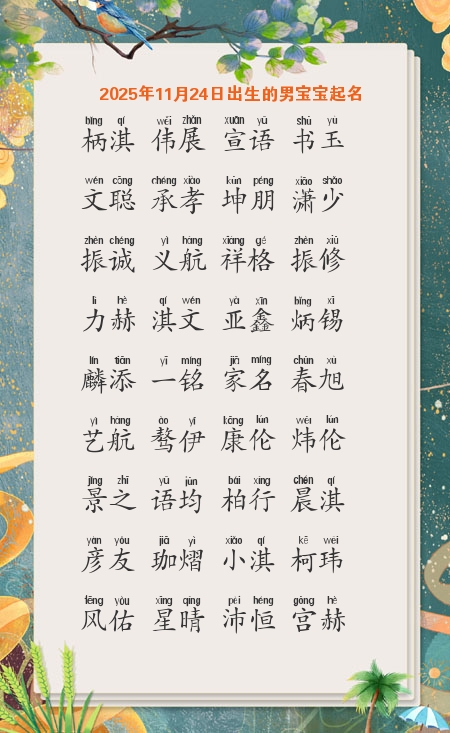 2025年11月24日出生的男宝宝起名
bǐng qí wěi zhǎn xuān yǔ shū yù
柄淇 伟展 宣语 书玉
wén cōng chéng xiào kūn péng xiāo shào
文聪 承孝 坤朋 潇少
zhèn chéng yì háng xiáng gé zhèn xiū
振诚 义航 祥格 振修
lì hè qí wén yà xīn bǐng xī
力赫 淇文 亚鑫 炳锡
lín tiān yī míng jiā míng chūn xù
麟添 一铭 家名 春旭
yì háng ào yī kāng lún wěi lún
艺航 骜伊 康伦 炜伦
jǐng zhī yǔ jūn bǎi xíng chén qí
景之 语均 柏行 晨淇
yàn yǒu jiā yì xiǎo qí kē wěi
彦友 珈熠 小淇 柯玮
fēng yòu xīng qíng pèi héng gōng hè
风佑 星晴 沛恒 宫赫